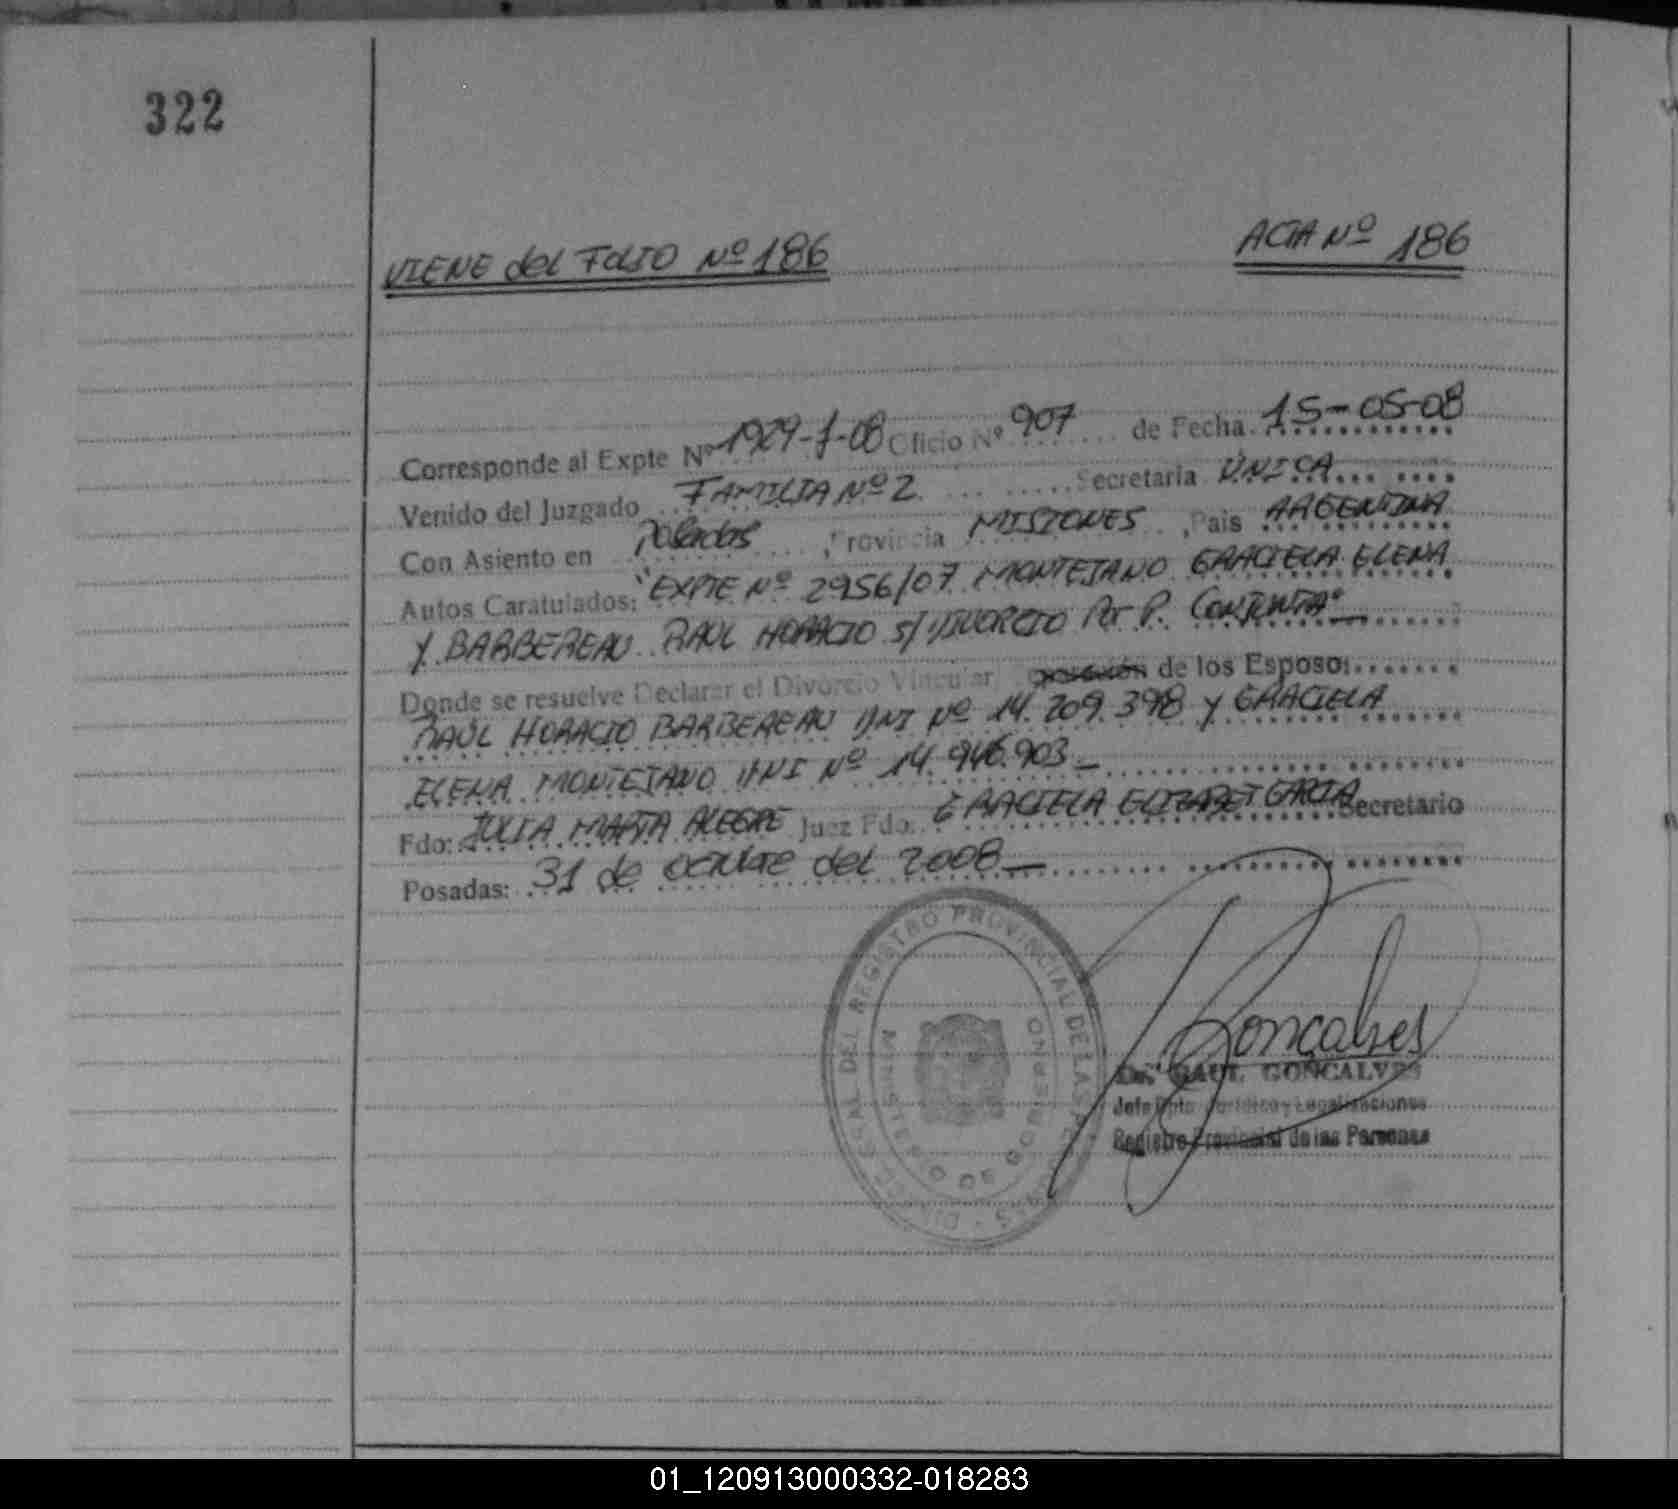 322
VIENE del FOLIO Nº 186
ACTA Nº 186
Corresponde al Expte Nº 1929-J-08 Oficio Nº 907 de Fecha 15-05-08
Venido del Juzgado FAMILIA Nº 2 Secretaria ÚNICA
Con Asiento en Posadas, Provincia MISIONES, Pais ARGENTINA
Autos Caratulados: "EXPTE Nº 2956/07 MONTEJANO GRACIELA ELENA
Y BARBEREAU RAUL HORACIO S/ DIVORCIO Por P. CONJUNTA"
Donde se resuelve Declarar el Divorcio Vincular, de los Esposos
RAÚL HORACIO BARBEREAU DNI Nº 14.209.398 Y GRACIELA
ELENA MONTEJANO DNI Nº 14.946.903
Fdo: JULIA MARTA ALEGRE Juez Fdo: GRACIELA ELIZABET GARCIA Secretario
Posadas: 31 de octubre del 2008
DIRECC. GENERAL DEL REGISTRO PROVINCIAL DE LAS PERSONAS
MINISTERIO DE GOBIERNO
Goncalves
Dr. RAUL GONCALVES
Jefe Dpto Juridico y Legalizaciones
Registro Provincial de las Personas
01_120913000332-018283